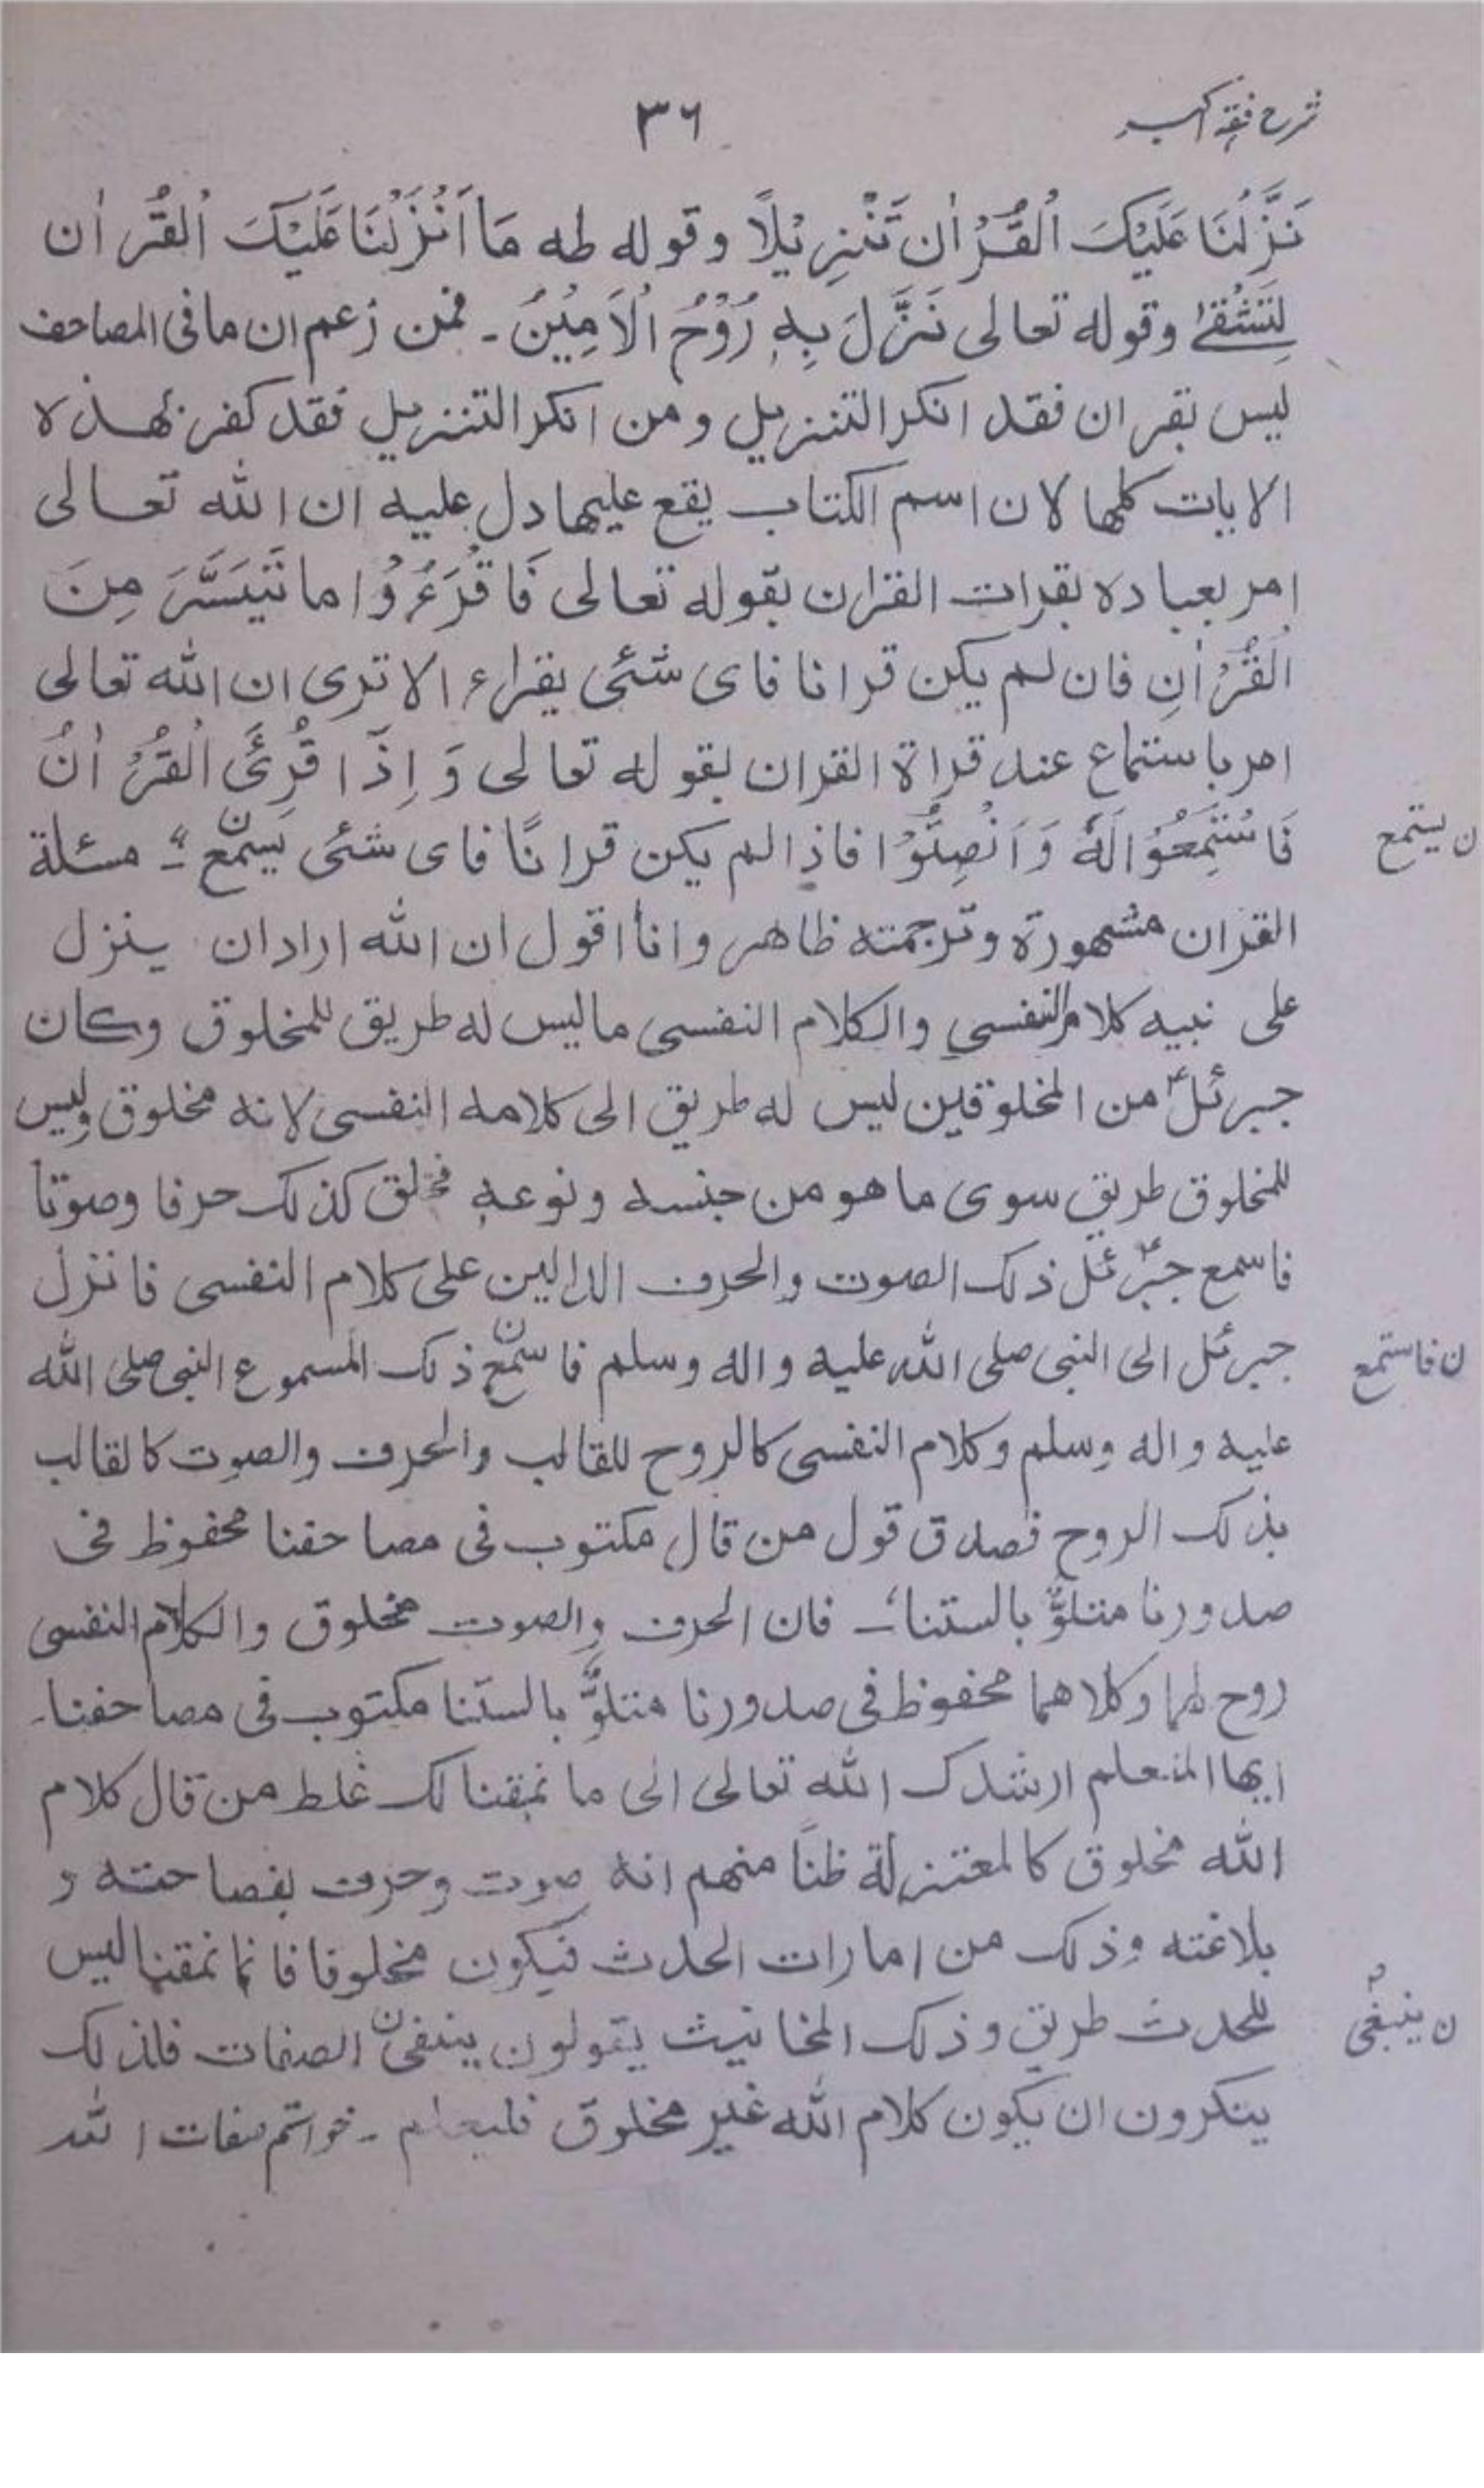 شرح فقہ اکبر
٣٦
نَزَّلْنَا عَلَيْكَ الْقُرْاٰن تَنْزِيْلًا وقوله طه مَا اَنْزَلْنَا عَلَيْكَ الْقُرْاٰن
لِتَشْقٰے وقوله تعالى نَزَّلَ بِهِ رُوْحُ الْاَمِيْنُ ۔ فمن زعم ان ما فى المصاحف
ليس بقران فقد انكر التنزيل ومن انكر التنزيل فقد كفر بهذه
الايات كلها لان اسم الكتاب يقع عليها دل عليه ان الله تعالى
امر بعباده بقرات القران بقوله تعالى فَاقْرَءُوْا ما تَيَسَّرَ مِنَ
الْقُرْاٰنِ فان لم يكن قرانا فاى شئى يقراء الا ترى ان الله تعالى
امر باستماع عند قراة القران بقوله تعالى وَ اِذَا قُرِئَ الْقُرْاٰنُ
فَاسْتَمِعُوْا لَهٗ وَ اَنْصِتُوْا فاذا لم يكن قرانًا فاى شئى يسمع ؞ مسئلة
ن يستمع
القران مشهورة وترجمته ظاهر وانا اقول ان الله اراد ان ينزل
على نبيه كلام النفسى والكلام النفسى ما ليس له طريق للمخلوق وكان
جبرئل من المخلوقين ليس له طريق الى كلامه النفسى لانه مخلوق وليس
للمخلوق طريق سوى ما هو من جنسه ونوعه فخلق كذلك حرفا وصوتا
فاسمع جبرئل ذلك الصوت والحرف الدالين على كلام النفسى فانزل
جبرئل الى النبى صلى الله عليه واله وسلم فاسمع ذلك المسموع النبى صلى الله
ن فاستمع
عليه واله وسلم وكلام النفسى كالروح للقالب والحرف والصوت كالقالب
بذلك الروح فصدق قول من قال مكتوب فى مصاحفنا محفوظ فى
صدورنا متلوٌّ بالستنا ۔ فان الحرف والصوت مخلوق والكلام النفسى
روح لهما وكلاهما محفوظ فى صدورنا متلوٌّ بالستنا مكتوب فى مصاحفنا۔
ايها المتعلم ارشدك الله تعالى الى ما نمقنا لك غلط من قال كلام
الله مخلوق كالمعتزلة ظنًا منهم انه صوت وحرف بفصاحته و
بلاغته وذلك من امارات الحدث فيكون مخلوقا فانا نمقنا ليس
للحدث طريق وذلك المخانيث يقولون ينفى الصفات فلذلك
ن ينبغى
ينكرون ان يكون كلام الله غير مخلوق فليعلم ۔ خواتم صفات الله